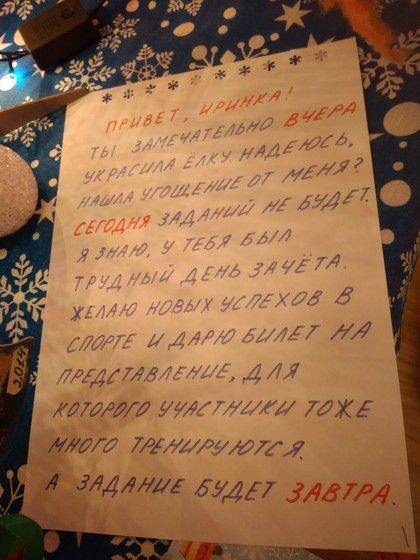 * * * * * * * * * *
ПРИВЕТ, ИРИНКА!
ТЫ ЗАМЕЧАТЕЛЬНО ВЧЕРА
УКРАСИЛА ЁЛКУ. НАДЕЮСЬ,
НАШЛА УГОЩЕНИЕ ОТ МЕНЯ?
СЕГОДНЯ ЗАДАНИЙ НЕ БУДЕТ.
Я ЗНАЮ, У ТЕБЯ БЫЛ
ТРУДНЫЙ ДЕНЬ ЗАЧЁТА.
ЖЕЛАЮ НОВЫХ УСПЕХОВ В
СПОРТЕ И ДАРЮ БИЛЕТ НА
ПРЕДСТАВЛЕНИЕ, ДЛЯ
КОТОРОГО УЧАСТНИКИ ТОЖЕ
МНОГО ТРЕНИРУЮТСЯ.
А ЗАДАНИЕ БУДЕТ ЗАВТРА.